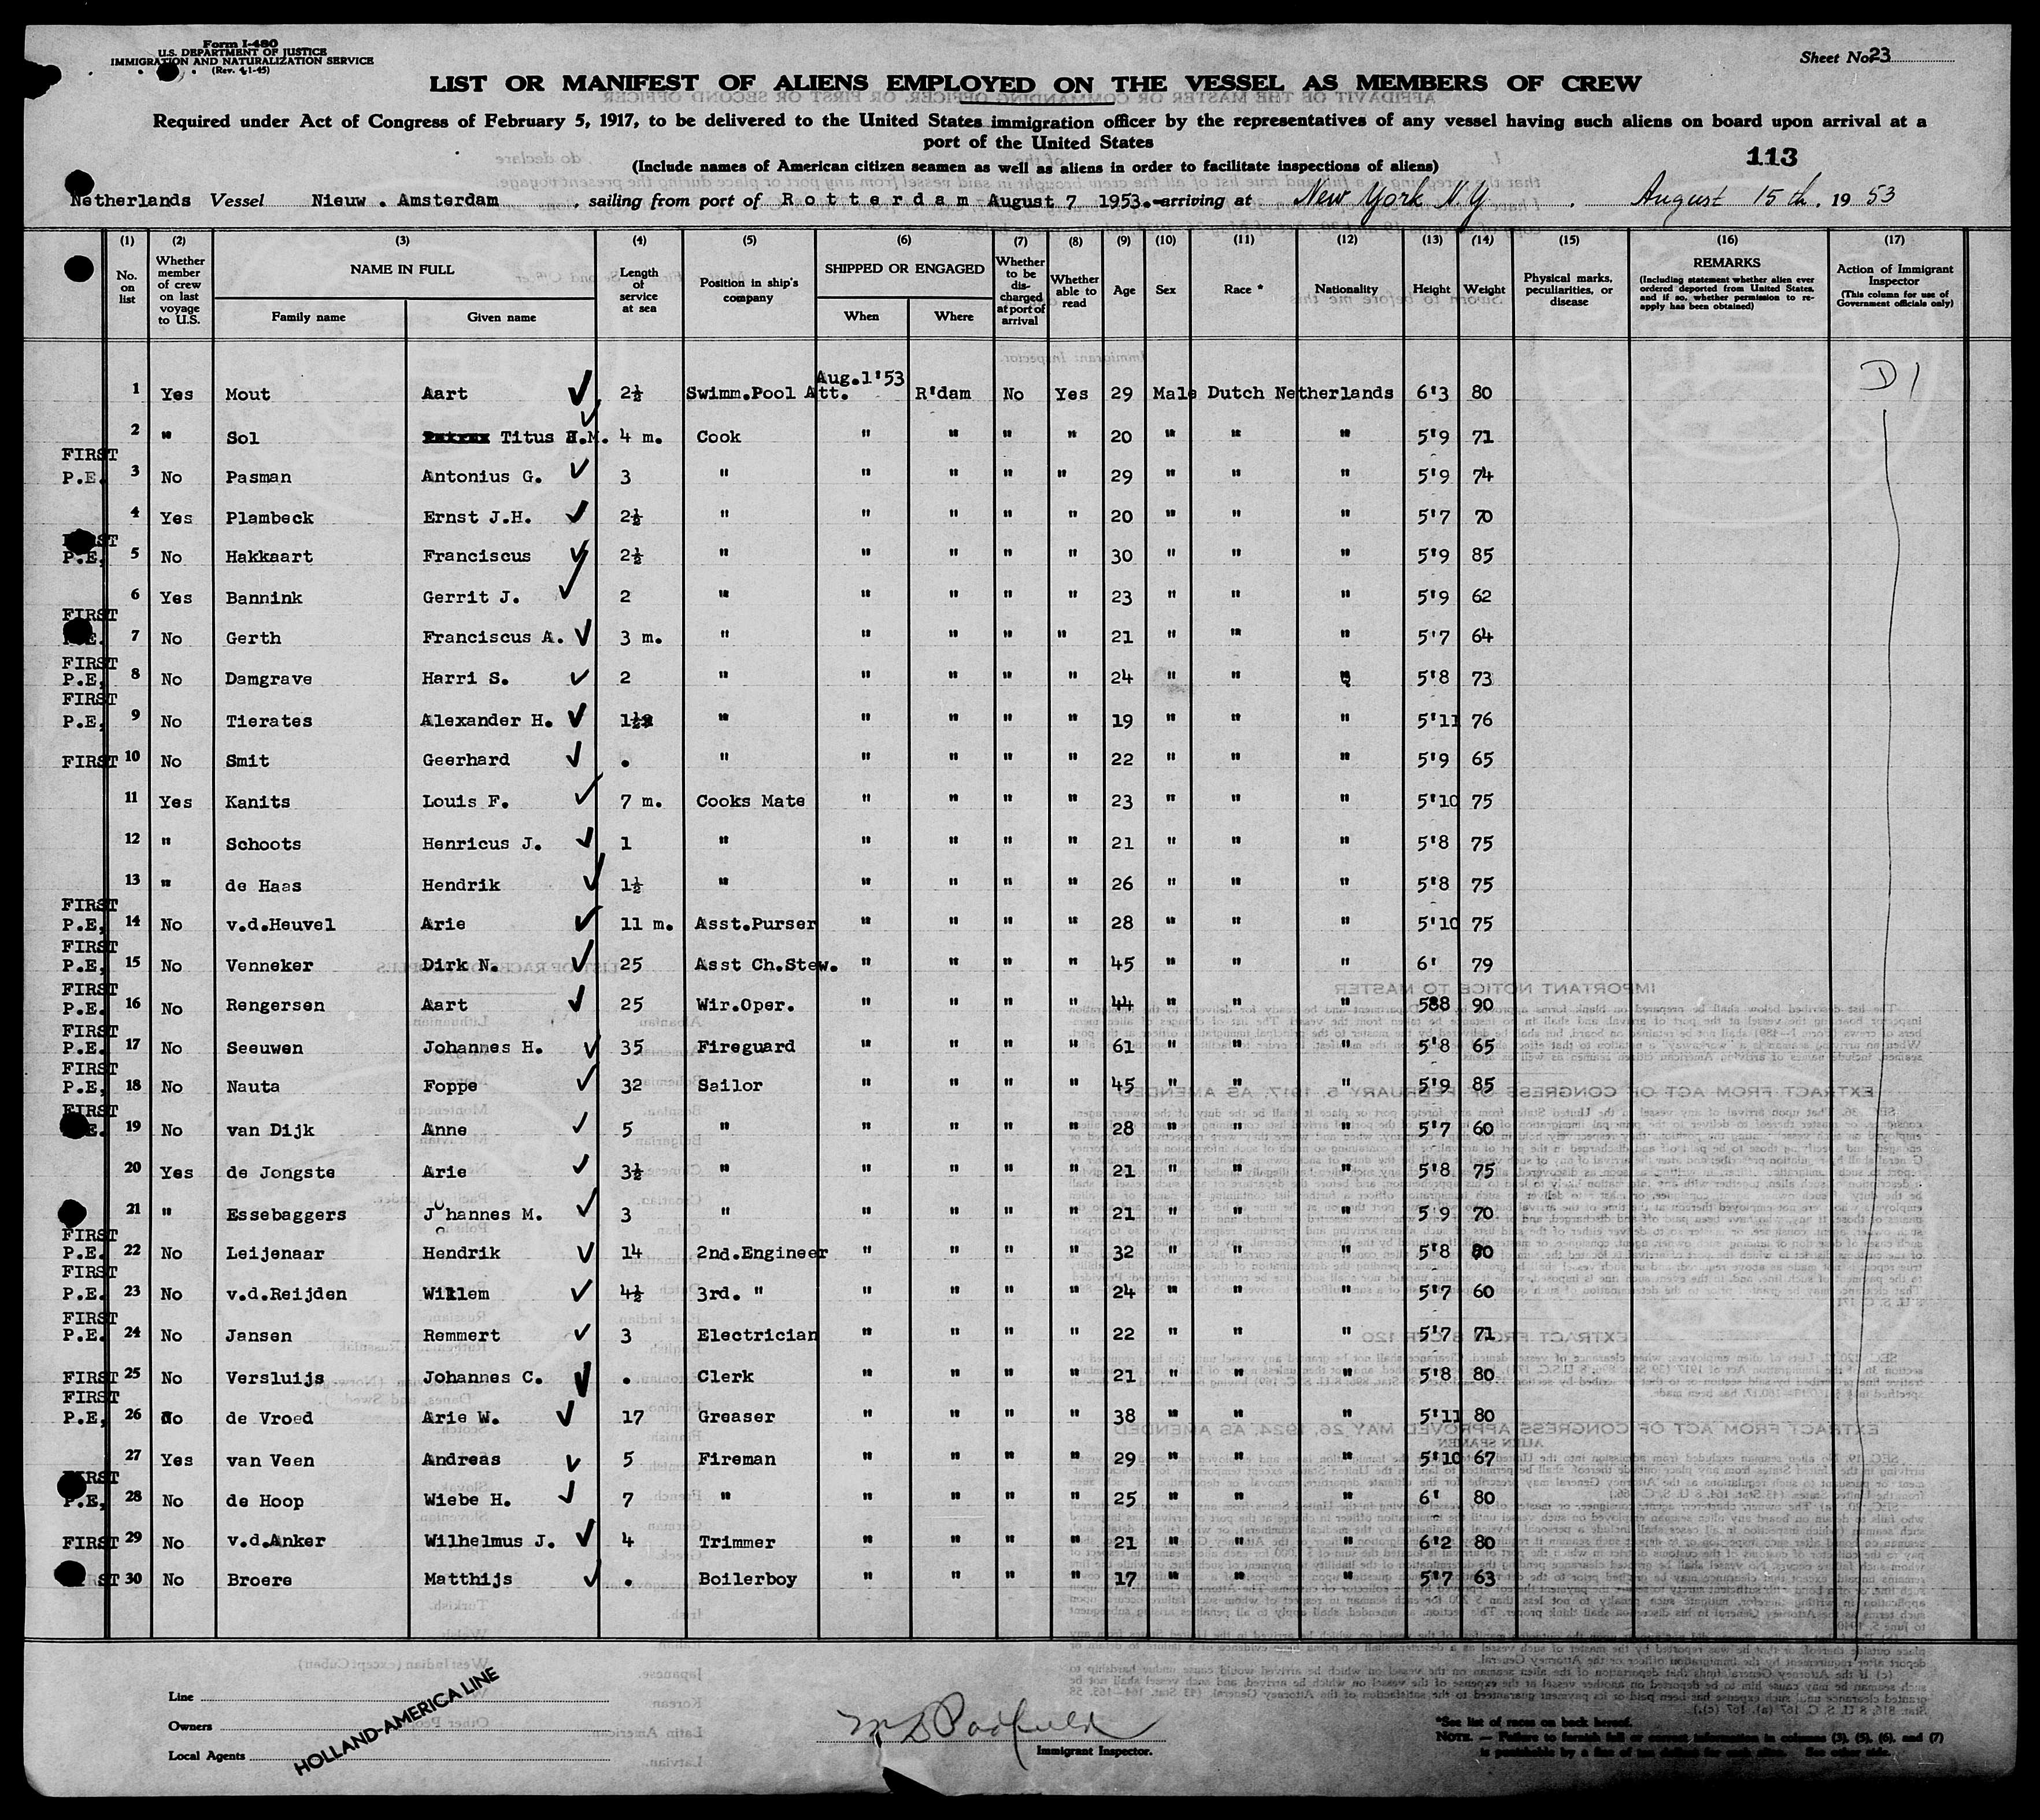 Form I-480
U.S. DEPARTMENT OF JUSTICE
IMMIGRATION AND NATURALIZATION SERVICE
(Rev. 4-1-45)
Sheet No. 23
LIST OR MANIFEST OF ALIENS EMPLOYED ON THE VESSEL AS MEMBERS OF CREW
Required under Act of Congress of February 5, 1917, to be delivered to the United States immigration officer by the representatives of any vessel having such aliens on board upon arrival at a
port of the United States
(Include names of American citizen seamen as well as aliens in order to facilitate inspections of aliens)
113
Netherlands Vessel Nieuw . Amsterdam, sailing from port of Rotterdam August 7 1953. arriving at New York N.Y. August 15th, 19 53
(1) (2) (3) (4) (5) (6) (7) (8) (9) (10) (11) (12) (13) (14) (15) (16) (17)
No. on list
Whether member of crew on last voyage to U.S.
NAME IN FULL
Family name
Given name
Length of service at sea
Position in ship's company
SHIPPED OR ENGAGED
When
Where
Whether to be discharged at port of arrival
Whether able to read
Age
Sex
Race *
Nationality
Height
Weight
Physical marks, peculiarities, or disease
REMARKS
(Including statement whether alien ever ordered deported from United States, and if so, whether permission to reapply has been obtained)
Action of Immigrant Inspector
(This column for use of Government officials only)
1 Yes Mout Aart 2½ Swimm.Pool Att. Aug.1'53 R'dam No Yes 29 Male Dutch Netherlands 6'3 80 D1
2 " Sol Titus H.M. 4 m. Cook " " " " 20 " " " 5'9 71
FIRST P.E. 3 No Pasman Antonius G. 3 " " " " " 29 " " " 5'9 74
4 Yes Plambeck Ernst J.H. 2½ " " " " " 20 " " " 5'7 70
FIRST P.E, 5 No Hakkaart Franciscus 2½ " " " " " 30 " " " 5'9 85
6 Yes Bannink Gerrit J. 2 " " " " " 23 " " " 5'9 62
FIRST P.E. 7 No Gerth Franciscus A. 3 m. " " " " " 21 " " " 5'7 64
FIRST P.E, 8 No Damgrave Harri S. 2 " " " " " 24 " " " 5'8 73
FIRST P.E, 9 No Tierates Alexander H. 1½ " " " " " 19 " " " 5'11 76
FIRST 10 No Smit Geerhard . " " " " " 22 " " " 5'9 65
11 Yes Kanits Louis F. 7 m. Cooks Mate " " " " 23 " " " 5'10 75
12 " Schoots Henricus J. 1 " " " " " 21 " " " 5'8 75
13 " de Haas Hendrik 1½ " " " " " 26 " " " 5'8 75
FIRST P.E, 14 No v.d.Heuvel Arie 11 m. Asst.Purser " " " " 28 " " " 5'10 75
FIRST P.E, 15 No Venneker Dirk N. 25 Asst Ch.Stew. " " " " 45 " " " 6' 79
FIRST P.E. 16 No Rengersen Aart 25 Wir.Oper. " " " " 44 " " " 5'8 90
FIRST P.E. 17 No Seeuwen Johannes H. 35 Fireguard " " " " 61 " " " 5'8 65
FIRST P.E, 18 No Nauta Foppe 32 Sailor " " " " 45 " " " 5'9 85
FIRST P.E. 19 No van Dijk Anne 5 " " " " " 28 " " " 5'7 60
20 Yes de Jongste Arie 3½ " " " " " 21 " " " 5'8 75
21 " Essebaggers Johannes M. 3 " " " " " 21 " " " 5'9 70
FIRST P.E. 22 No Leijenaar Hendrik 14 2nd.Engineer " " " " 32 " " " 5'8 80
FIRST P.E. 23 No v.d.Reijden Willem 4½ 3rd. " " " " " 24 " " " 5'7 60
FIRST P.E. 24 No Jansen Remmert 3 Electrician " " " " 22 " " " 5'7 71
FIRST 25 No Versluijs Johannes C. . Clerk " " " " 21 " " " 5'8 80
FIRST P.E, 26 No de Vroed Arie W. 17 Greaser " " " " 38 " " " 5'11 80
27 Yes van Veen Andreas 5 Fireman " " " " 29 " " " 5'10 67
FIRST P.E, 28 No de Hoop Wiebe H. 7 " " " " " 25 " " " 6' 80
FIRST 29 No v.d.Anker Wilhelmus J. 4 Trimmer " " " " 21 " " " 6'2 80
FIRST 30 No Broere Matthijs . Boilerboy " " " " 17 " " " 5'7 63
Line
Owners
Local Agents
HOLLAND-AMERICA LINE
Immigrant Inspector.
*See list of races on back hereof.
NOTE. — Failure to furnish full or correct information in columns (3), (5), (6), and (7)
is punishable by a fine of ten dollars for each alien. See other side.